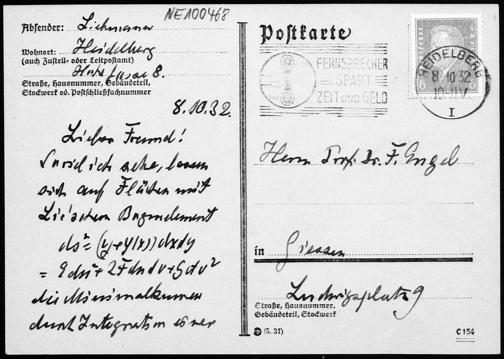 NE100468
Absender: Liebmann
Wohnort: Heidelberg
(auch Zustell- oder Leitpostamt)
8.
Straße, Hausnummer, Gebäudeteil,
Stockwerk od. Postschließfachnummer
8.10.32.
Lieber Freund!
ich sehe, lassen
sich auf Flächen mit
Lie'schem Bogenelement
ds² = (y+f(x))dxdy
= Edu²+2Fdudv+Gdv²
die Minimalkurven
durch Integration
Postkarte
FERNSPRECHER
SPART
ZEIT UND GELD
HEIDELBERG
8.10.32
I
6
Herrn Prof. Dr. F. Engel
in Giessen
Ludwigsplatz 9
Straße, Hausnummer,
Gebäudeteil, Stockwerk
(5. 31)
C 154